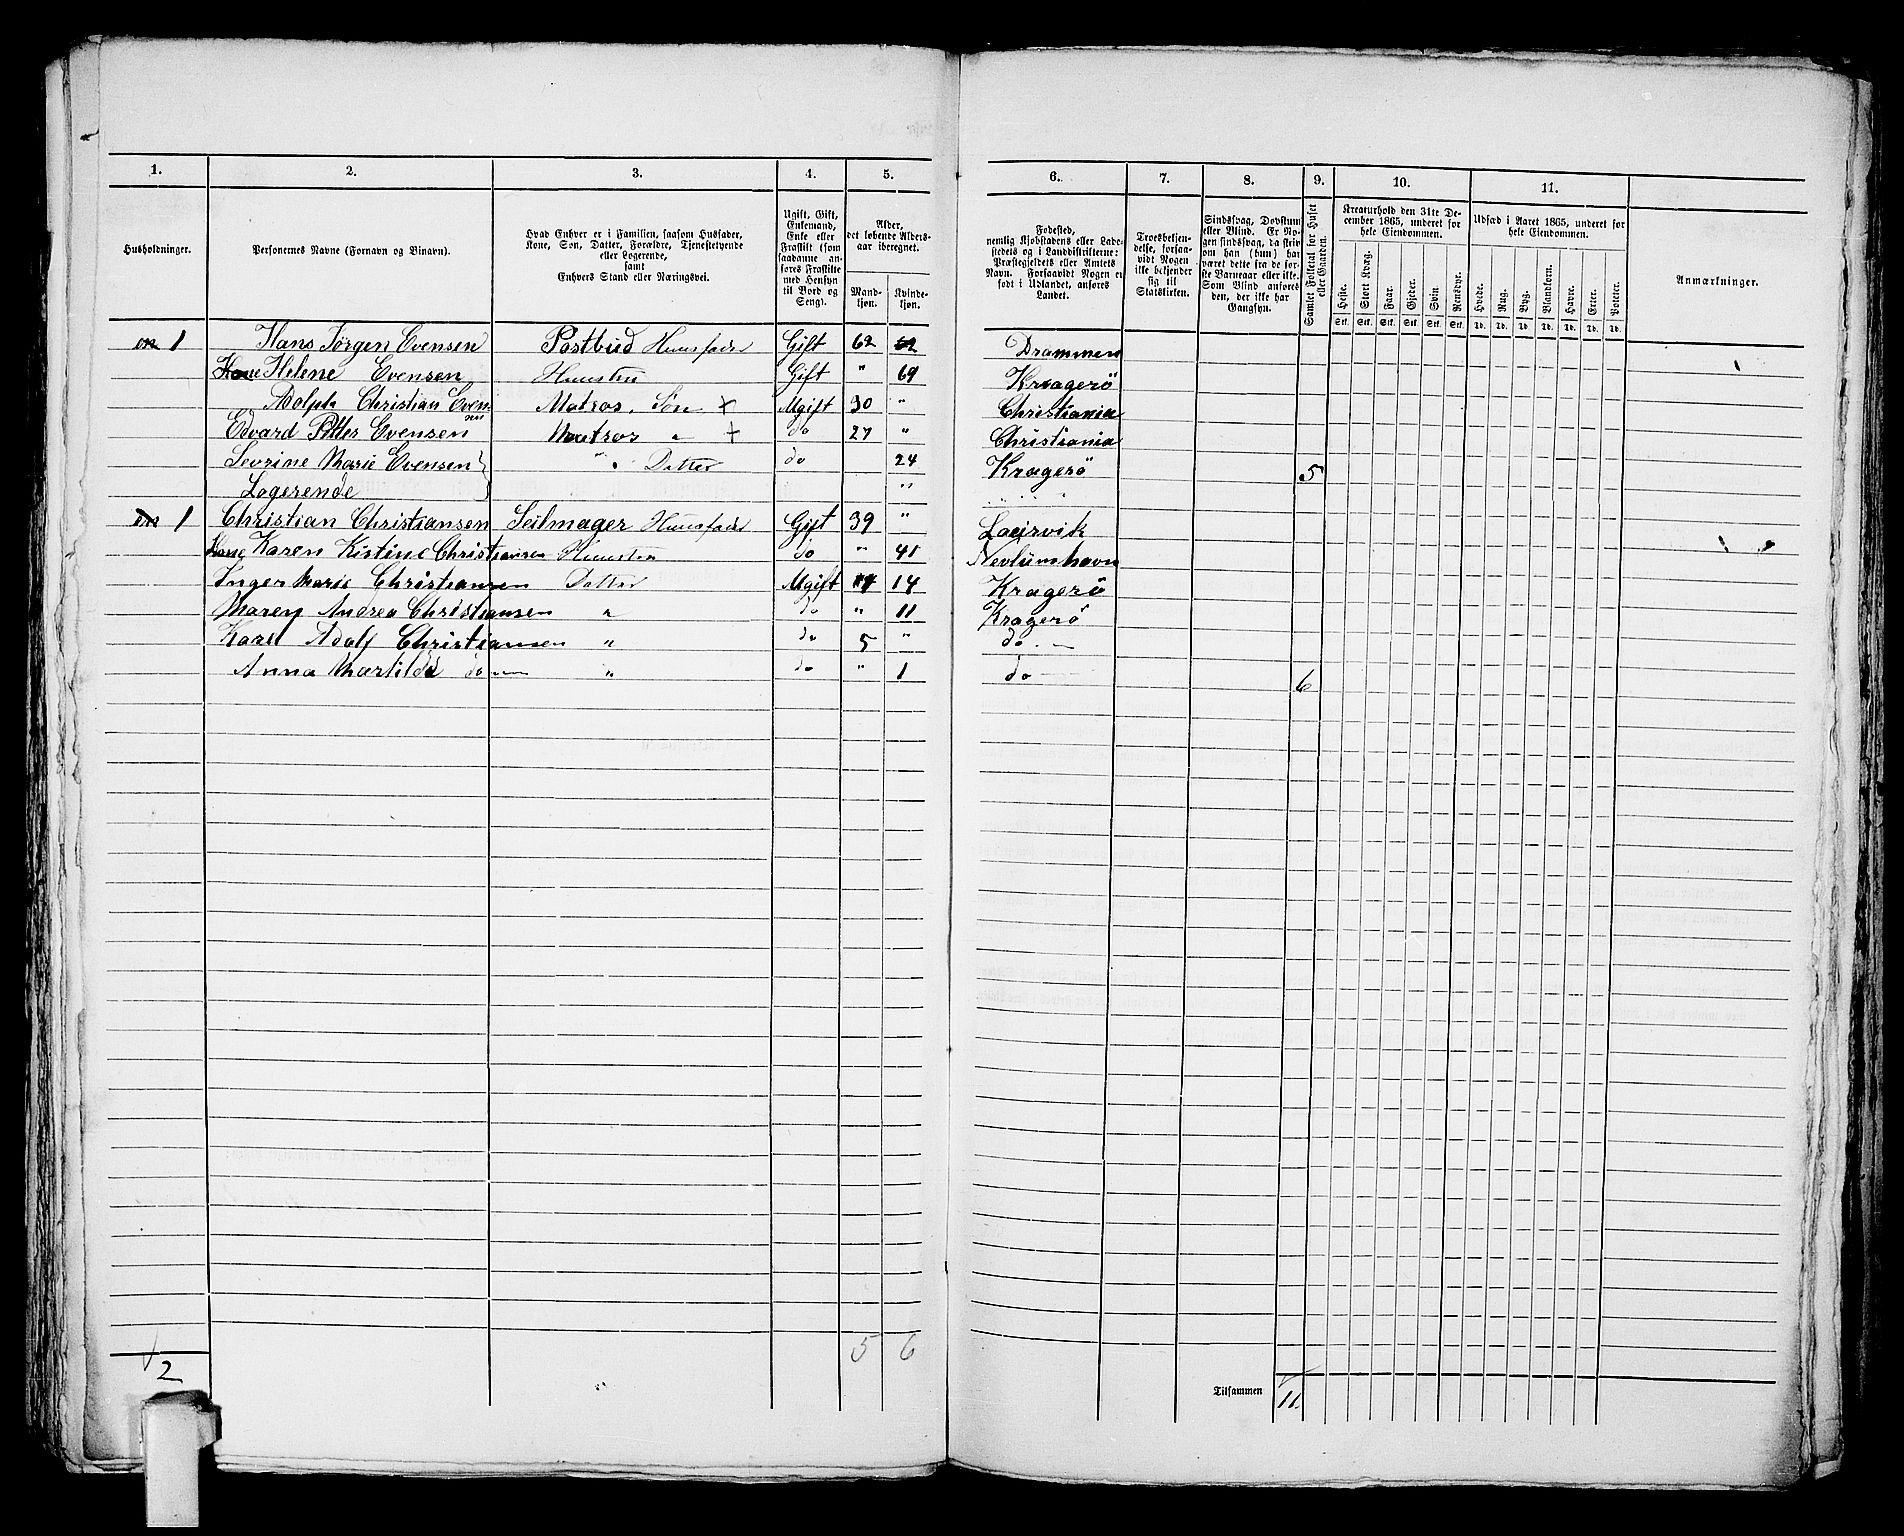 1. 2. 3. 4. 5. 6. 7. 8. 9. 10. 11.
Husholdninger.
Personernes Navne (Fornavn og Binavn).
Hvad Enhver er i Familien, saasom Husfader,
Kone, Søn, Datter, Forældre, Tjenestetyende
eller Logerende,
samt
Enhvers Stand eller Næringsvei.
Ugift, Gift,
Enkemand,
Enke eller
Fraskilt (som
saadanne an-
føres Fraskilte
med Hensyn
til Bord og
Seng).
Alder,
det løbende Alders-
aar iberegnet.
Mand-
kjøn.
Kvinde-
kjøn.
Fødested,
nemlig Kjøbstadens eller Lade-
stedets og i Landdistrikterne:
Præstegjeldets eller Amtets
Navn. Forsaavidt Nogen er
født i Udlandet, anføres
Landet.
Troesbekjen-
delse, forsaa-
vidt Nogen
ikke bekjender
sig til
Statskirken.
Sindssvag, Døvstum
eller Blind. Er No-
gen sindssvag, da skriv
om han (hun) har
været dette fra de før-
ste Barneaar eller ikke.
Som Blind anføres
den, der ikke har
Gangsyn.
Samlet Folketal for Huset
eller Gaarden.
Kreaturhold den 31te De-
cember 1865, underet for
hele Eiendommen.
Heste. Stort Kvæg. Faar. Gjeder. Svin. Rensdyr.
Stk. Stk. Stk. Stk. Stk. Stk.
Udsæd i Aaret 1865, underet for
hele Eiendommen.
Hvede. Rug. Byg. Blandkorn. Havre. Erter. Poteter.
Td. Td. Td. Td. Td. Td. Td.
Anmærkninger.
en 1 Hans Jørgen Evensen Postbud Huusfader Gift 62 62 Drammen
Kone Helene Evensen Huustru Gift " 69 Kragerö
Adolph Christian Evensen Matros, Søn + Ugift 30 " Christiania
Edvard Petter Evensen Matros " + do 27 " Christiania
Sevrine Marie Evensen " Datter do 24 Kragerö 5
Logerende "
en 1 Christian Christiansen Seilmager Huusfader Gift 39 " Laurvik
Kone Karen Kistine Christiansen Huustru do " 41 Nevlunhavn
Inger Marie Christiansen Datter Ugift 14 Kragerö
Maren Andrea Christiansen " do " 11 Kragerö
Karl Adolf Christiansen " do 5 " do
Anna Martilde do " do " 1 do 6
2 5 6
Tilsammen 11.